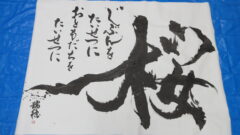 桜
じぶんを
たいせつに
おともだちを
たいせつに